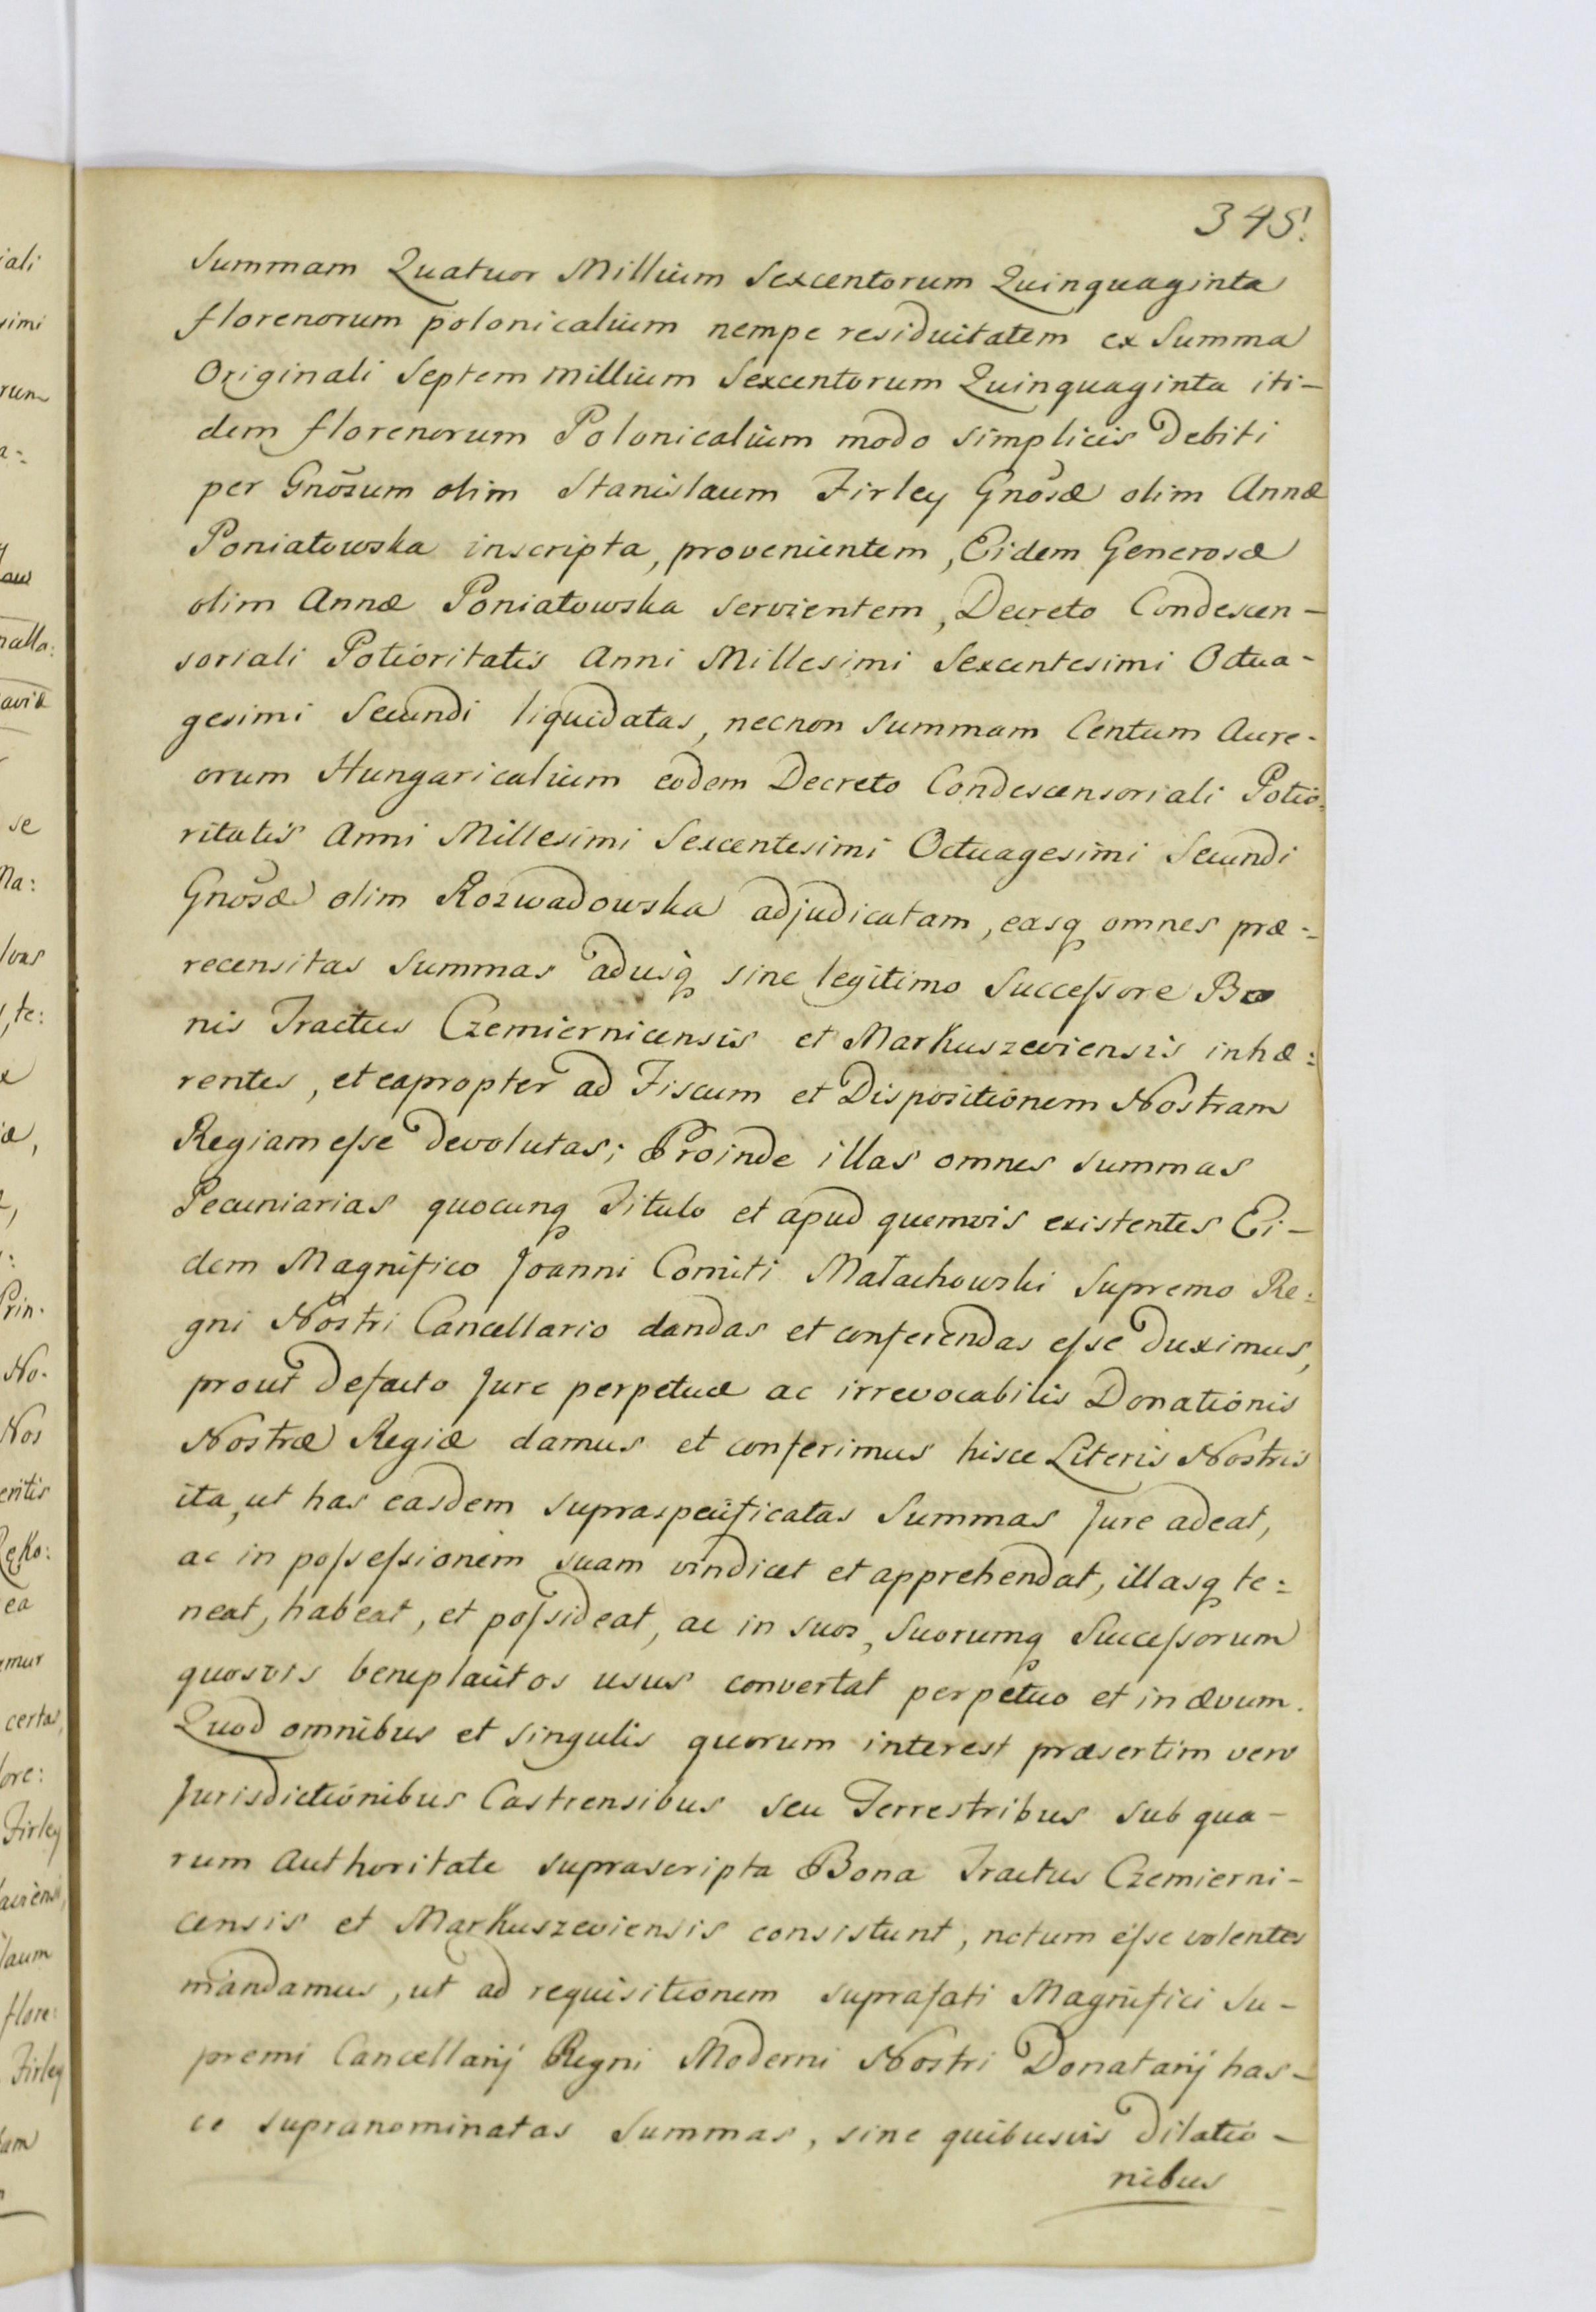 345.
Summam Quatuor Millium Sexcentorum Quinquaginta
florenorum polonicalium nempe residuitatem ex Summa
Originali Septem millium Sexcentorum Quinquaginta iti-
dem florenorum Polonicalium modo simplicis Debiti
per Gnõsum olim Stanislaum Firley Gnõsæ olim Annæ
Poniatowska inscripta, provenientem, Eidem Generosæ
olim Annæ Poniatowska servientem, Decreto Condescen-
soriali Potioritatis Anni Millesimi Sexcentesimi Octua-
gesimi Secundi liquidatas, necnon Summam Centum Aure-
orum Hungaricalium eodem Decreto Condescensoriali Potio:
ritatis Anni Millesimi Sexcentesimi Octuagesimi Secundi
Gnõsæ olim Rozwadowska adjudicatam, easq omnes præ:
recensitas Summas adusq sine legitimo Successore Bo
nis Tractus Czemiernicensis et Markuszeviensis inhæ:
rentes, et eapropter ad Fiscum et Dispositionem Nostram
Regiam esse devolutas; Proinde illas omnes summas
Pecuniarias quocunq Titulo et apud quemvis existentes Ei-
dem Magnifico Joanni Comiti Małachowski Supremo Re:
gni Nostri Cancellario dandas et conferendas esse duximus,
prout defacto Jure perpetuæ ac irrevocabilis Donationis
Nostræ Regiæ damus et conferimus hisce Literis Nostris
ita, ut has easdem supraspecificatas Summas Jure adeat,
ac in possessionem suam vindicet et apprehendat, illasq te:
neat, habeat, et possideat, ac in suos, Suorumq Successorum
quosvis beneplacitos usus convertat perpetuo et in ævum.
Quod omnibus et singulis quorum interest præsertim vero
Jurisdictionibus Castrensibus seu Terrestribus sub qua-
rum Authoritate suprascripta Bona Tractus Czemierni-
censis et Markuszeviensis consistunt, notum esse volentes
mandamus, ut ad requisitionem suprafati Magnifici Su-
premi Cancellarij Regni Moderni Nostri Donatarij has-
ce supranominatas Summas, sine quibusvis dilatio-
nibus